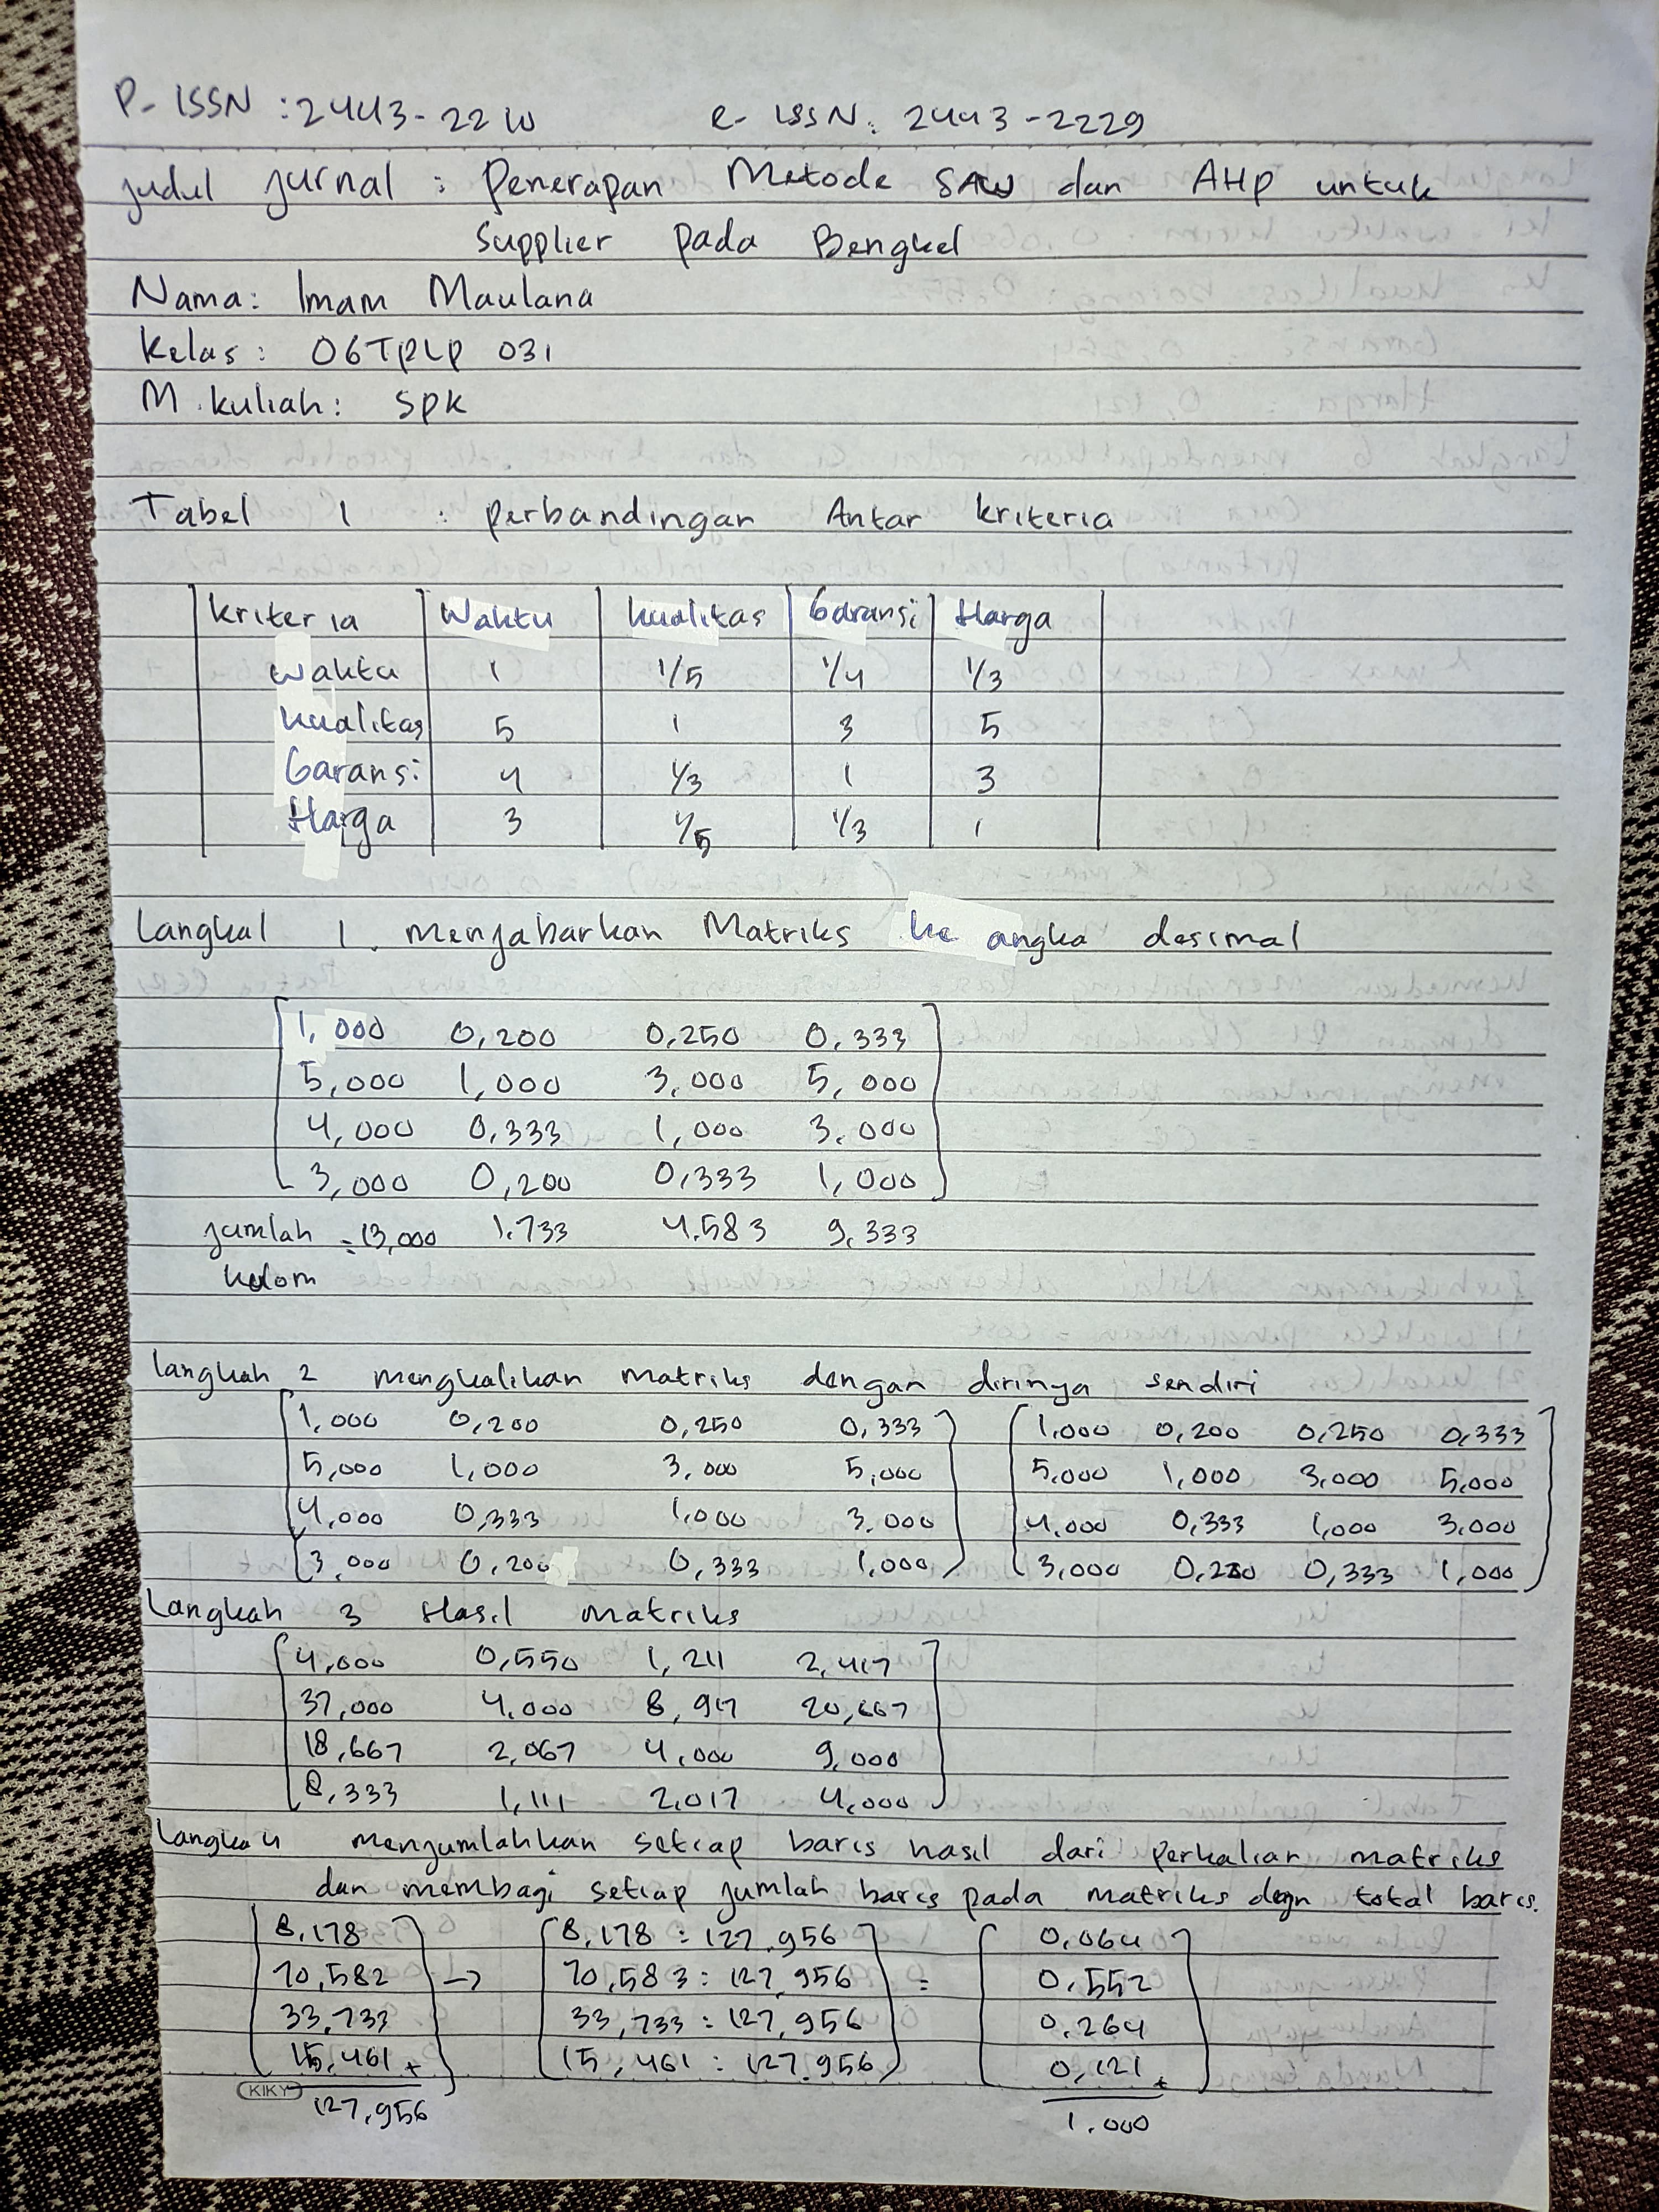 P- ISSN : 2443-2210 e- ISSN: 2443-2229
judul jurnal : Penerapan Metode SAW dan AHP untuk
Supplier pada Bengkel
Nama: Imam Maulana
Kelas: 06TPLP 031
M. kuliah: SPK
Tabel 1 : perbandingan Antar kriteria
kriteria Waktu kualitas Garansi Harga
Waktu 1 1/5 1/4 1/3
kualitas 5 1 3 5
Garansi 4 1/3 1 3
Harga 3 1/5 1/3 1
Langkal 1. menjabarkan Matriks ke angka desimal
1,000 0,200 0,250 0,333
5,000 1,000 3,000 5,000
4,000 0,333 1,000 3,000
3,000 0,200 0,333 1,000
jumlah = 13,000 1.733 4.583 9,333
kolom
langkah 2 mengkalikan matriks dengan dirinya sendiri
1,000 0,200 0,250 0,333 1,000 0,200 0,250 0,333
5,000 1,000 3,000 5,000 5,000 1,000 3,000 5,000
4,000 0,333 1,000 3,000 4,000 0,333 1,000 3,000
3,000 0,200 0,333 1,000 3,000 0,200 0,333 1,000
Langkah 3 Hasil matriks
4,000 0,550 1,211 2,417
37,000 4,000 8,917 20,667
18,667 2,067 4,000 9,000
8,333 1,111 2,017 4,000
Langka 4 menjumlahkan setiap baris hasil dari perkalian matriks
dan membagi setiap jumlah baris pada matriks dgn total baris.
8,178 8,178 : 127.956 0,064
70,582 → 70,583 : 127,956 = 0,552
33,733 33,733 : 127,956 0,264
15,461 + 15,461 : 127.956 0,121 +
KIKY 127,956 1.000